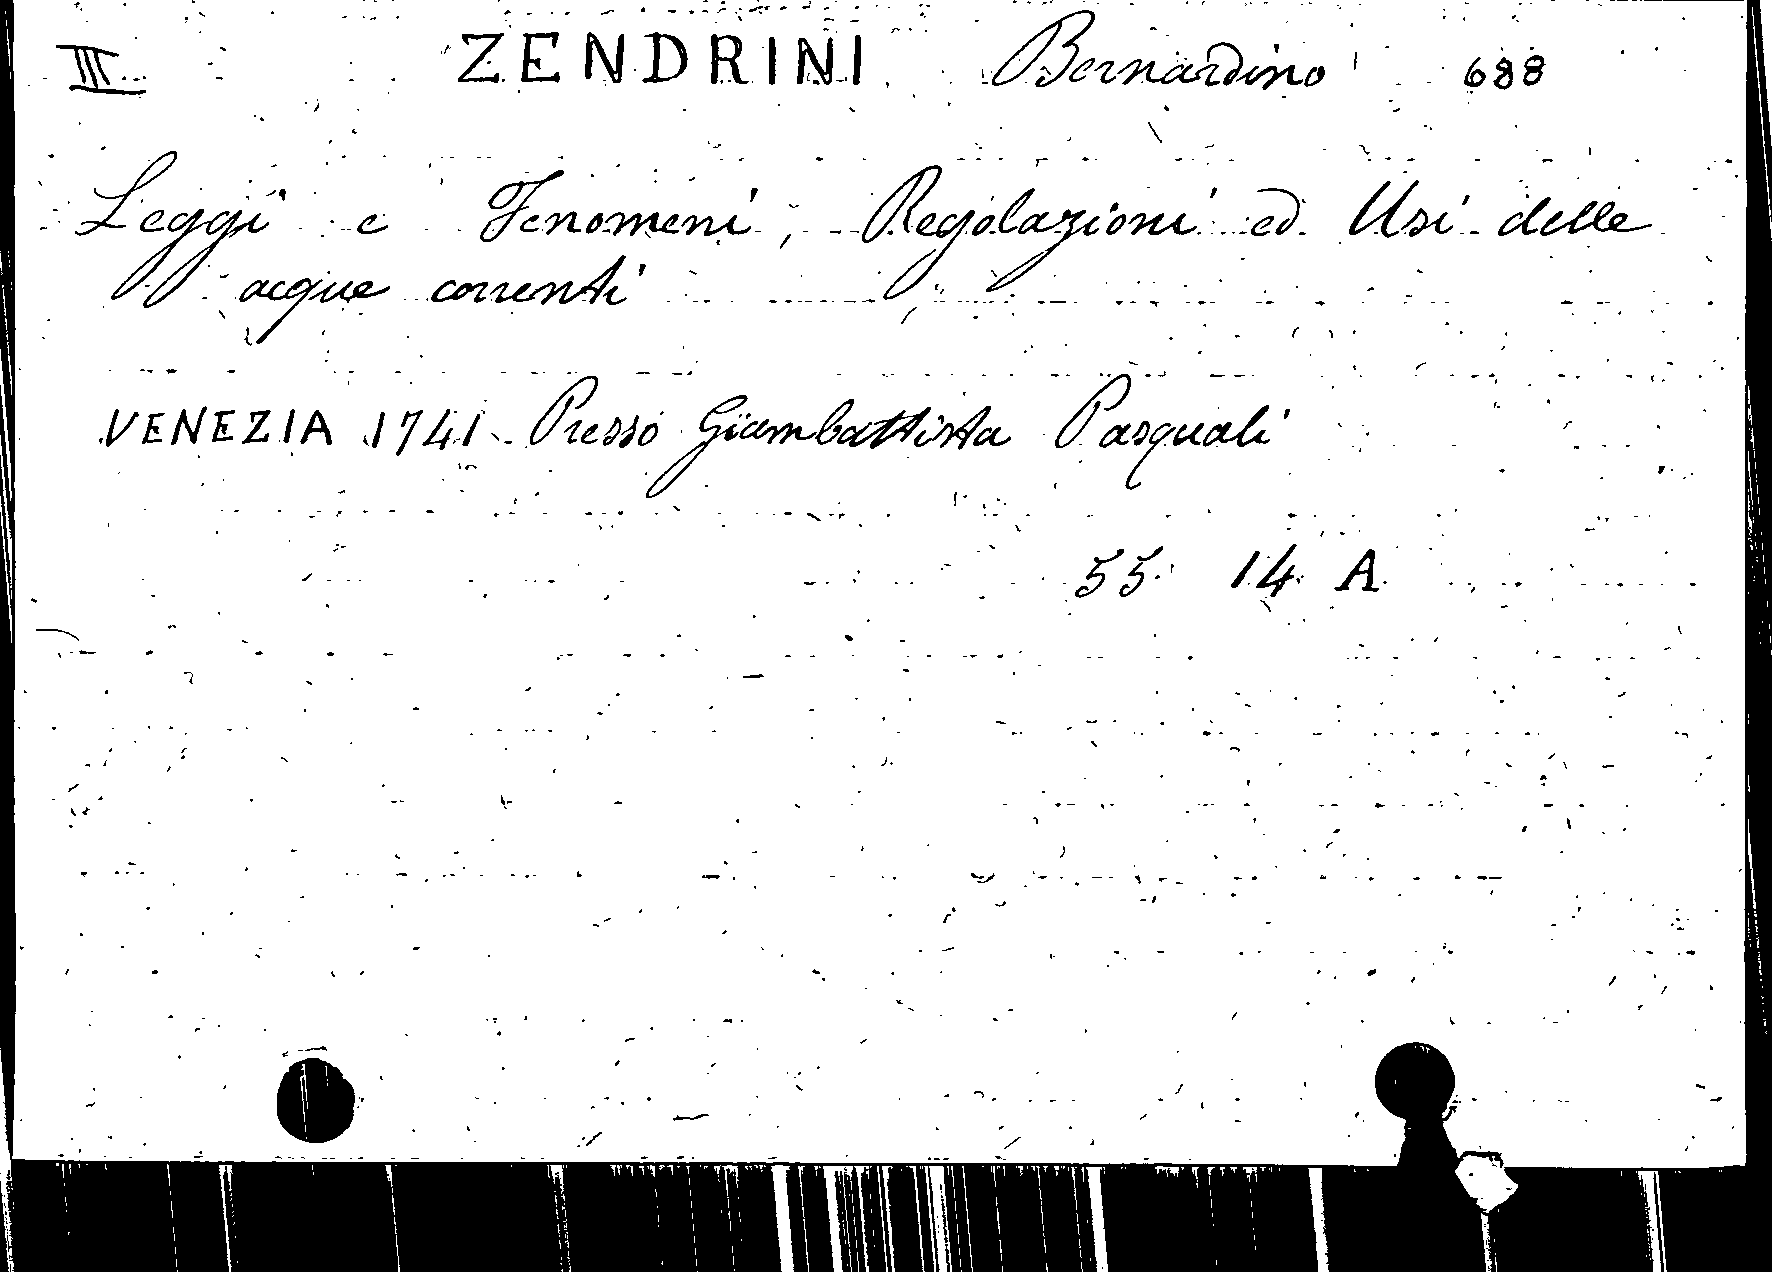 III ZENDRINI Bernardino 688
Leggi e Fenomeni, Regolazioni ed Usi delle
acque correnti
VENEZIA 1741 Presso Giambattista Pasquali
55 14 A